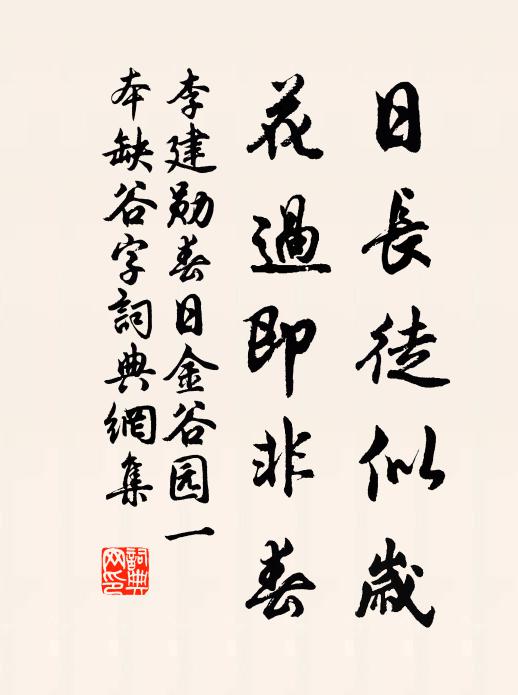 日長徒似歲
花過即非春
李建勋春日金谷园一
本缺谷字詞典網集
詞典网印